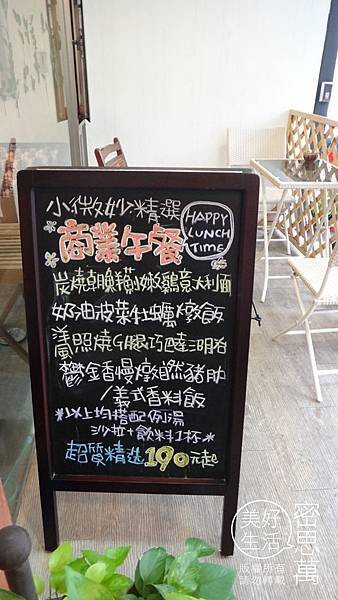 小微妙精選
HAPPY
LUNCH
TIME
*商業午餐*
炭燒朝鮮薊嫩雞意大利面
奶油波菜牡蠣燉飯
薑照燒G腿巧達三明治
鬱金香慢燉自然豬肋
/義式香料飯
*以上均搭配例湯
沙拉+飲料1杯*
超質精選190元起
美好
生活
密思萬
版權所有
請勿轉載